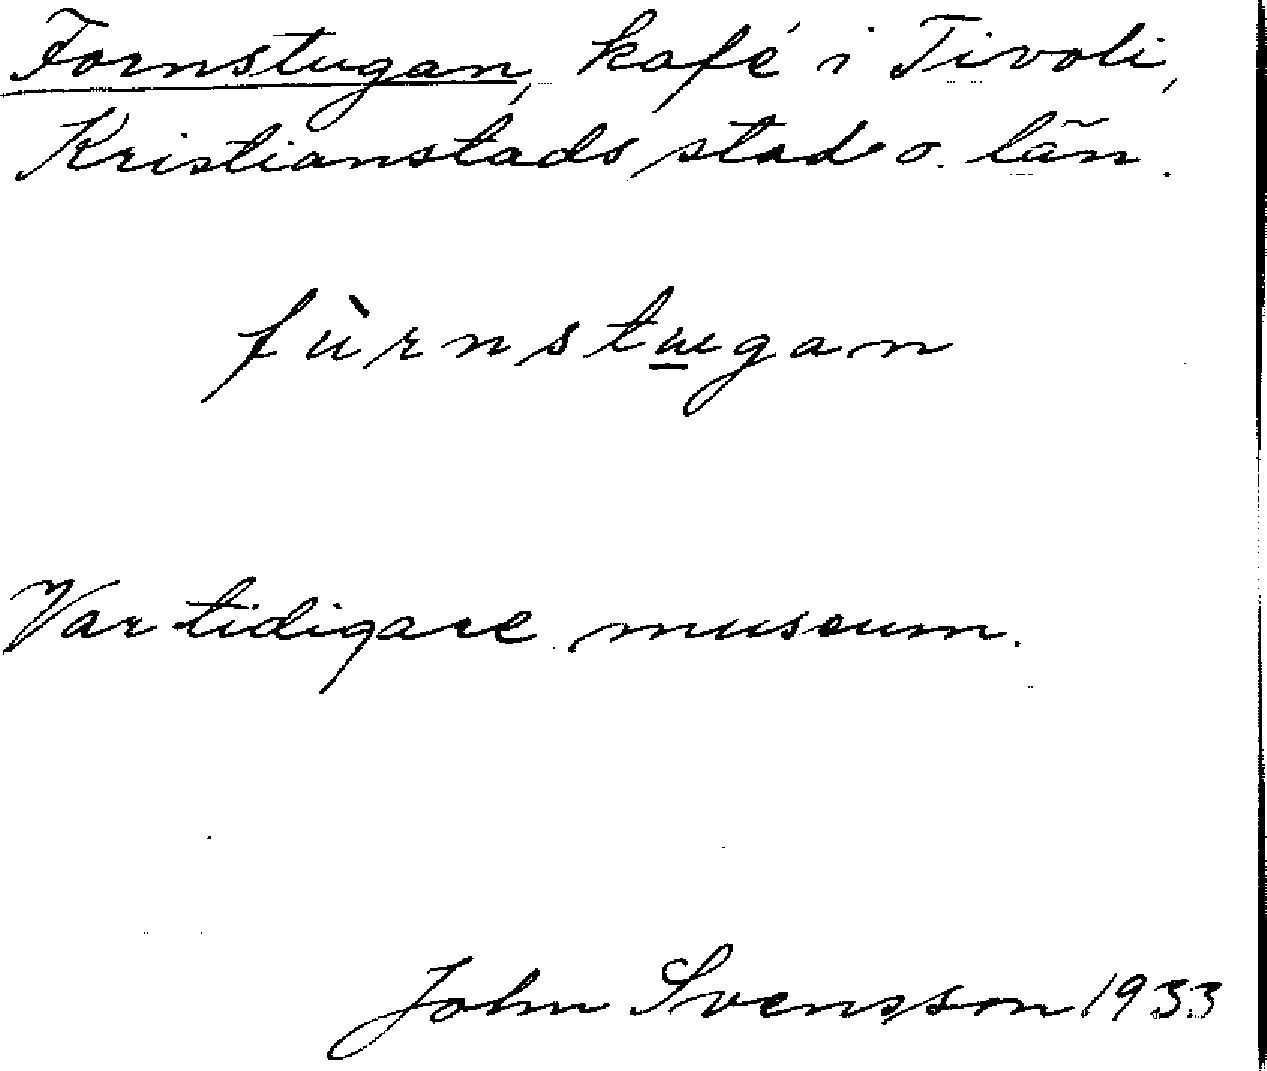 Fornstugan, kafé i Tivoli,
Kristianstads stad o. län.
fùrnstɯgan
Var tidigare museum.
John Svensson 1933